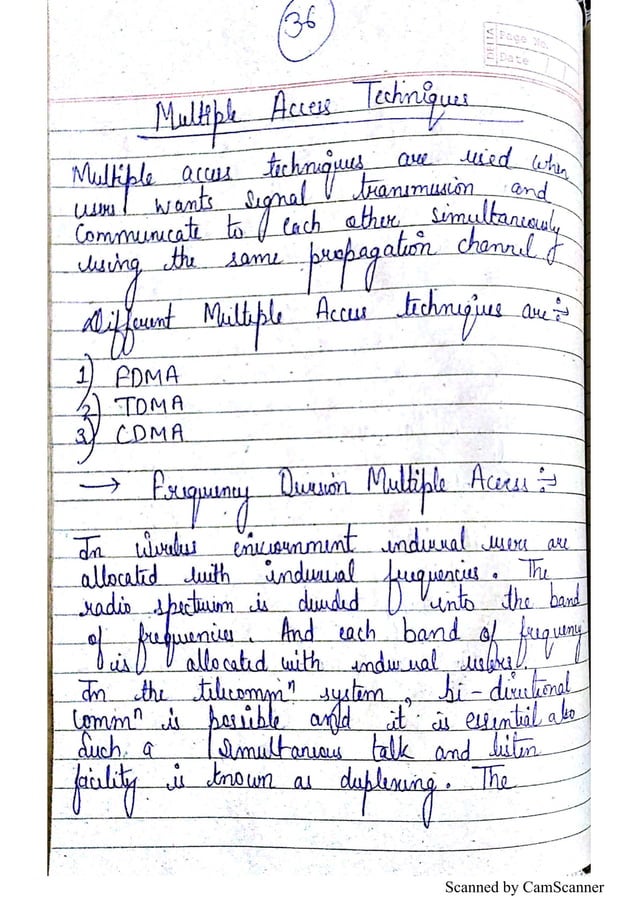 36
Page No.
Date
Multiple Access Techniques
Multiple access techniques are used when
users wants signal transmission and
Communicate to each other simultaneously
using the same propagation channel
Different Multiple Access techniques are :-
1) FDMA
2) TDMA
3) CDMA
→ Frequency Division Multiple Access :-
In wireless enviournment indiviual users are
allocated with indiviual frequencies. The
radio spectrum is divided into the band
of frequencies. And each band of frequency
is allocated with indiviual users.
In the telecommⁿ system, bi-directional
commⁿ is possible and it is essential also
Such a simultaneous talk and listen
facility is known as duplexing. The
Scanned by CamScanner